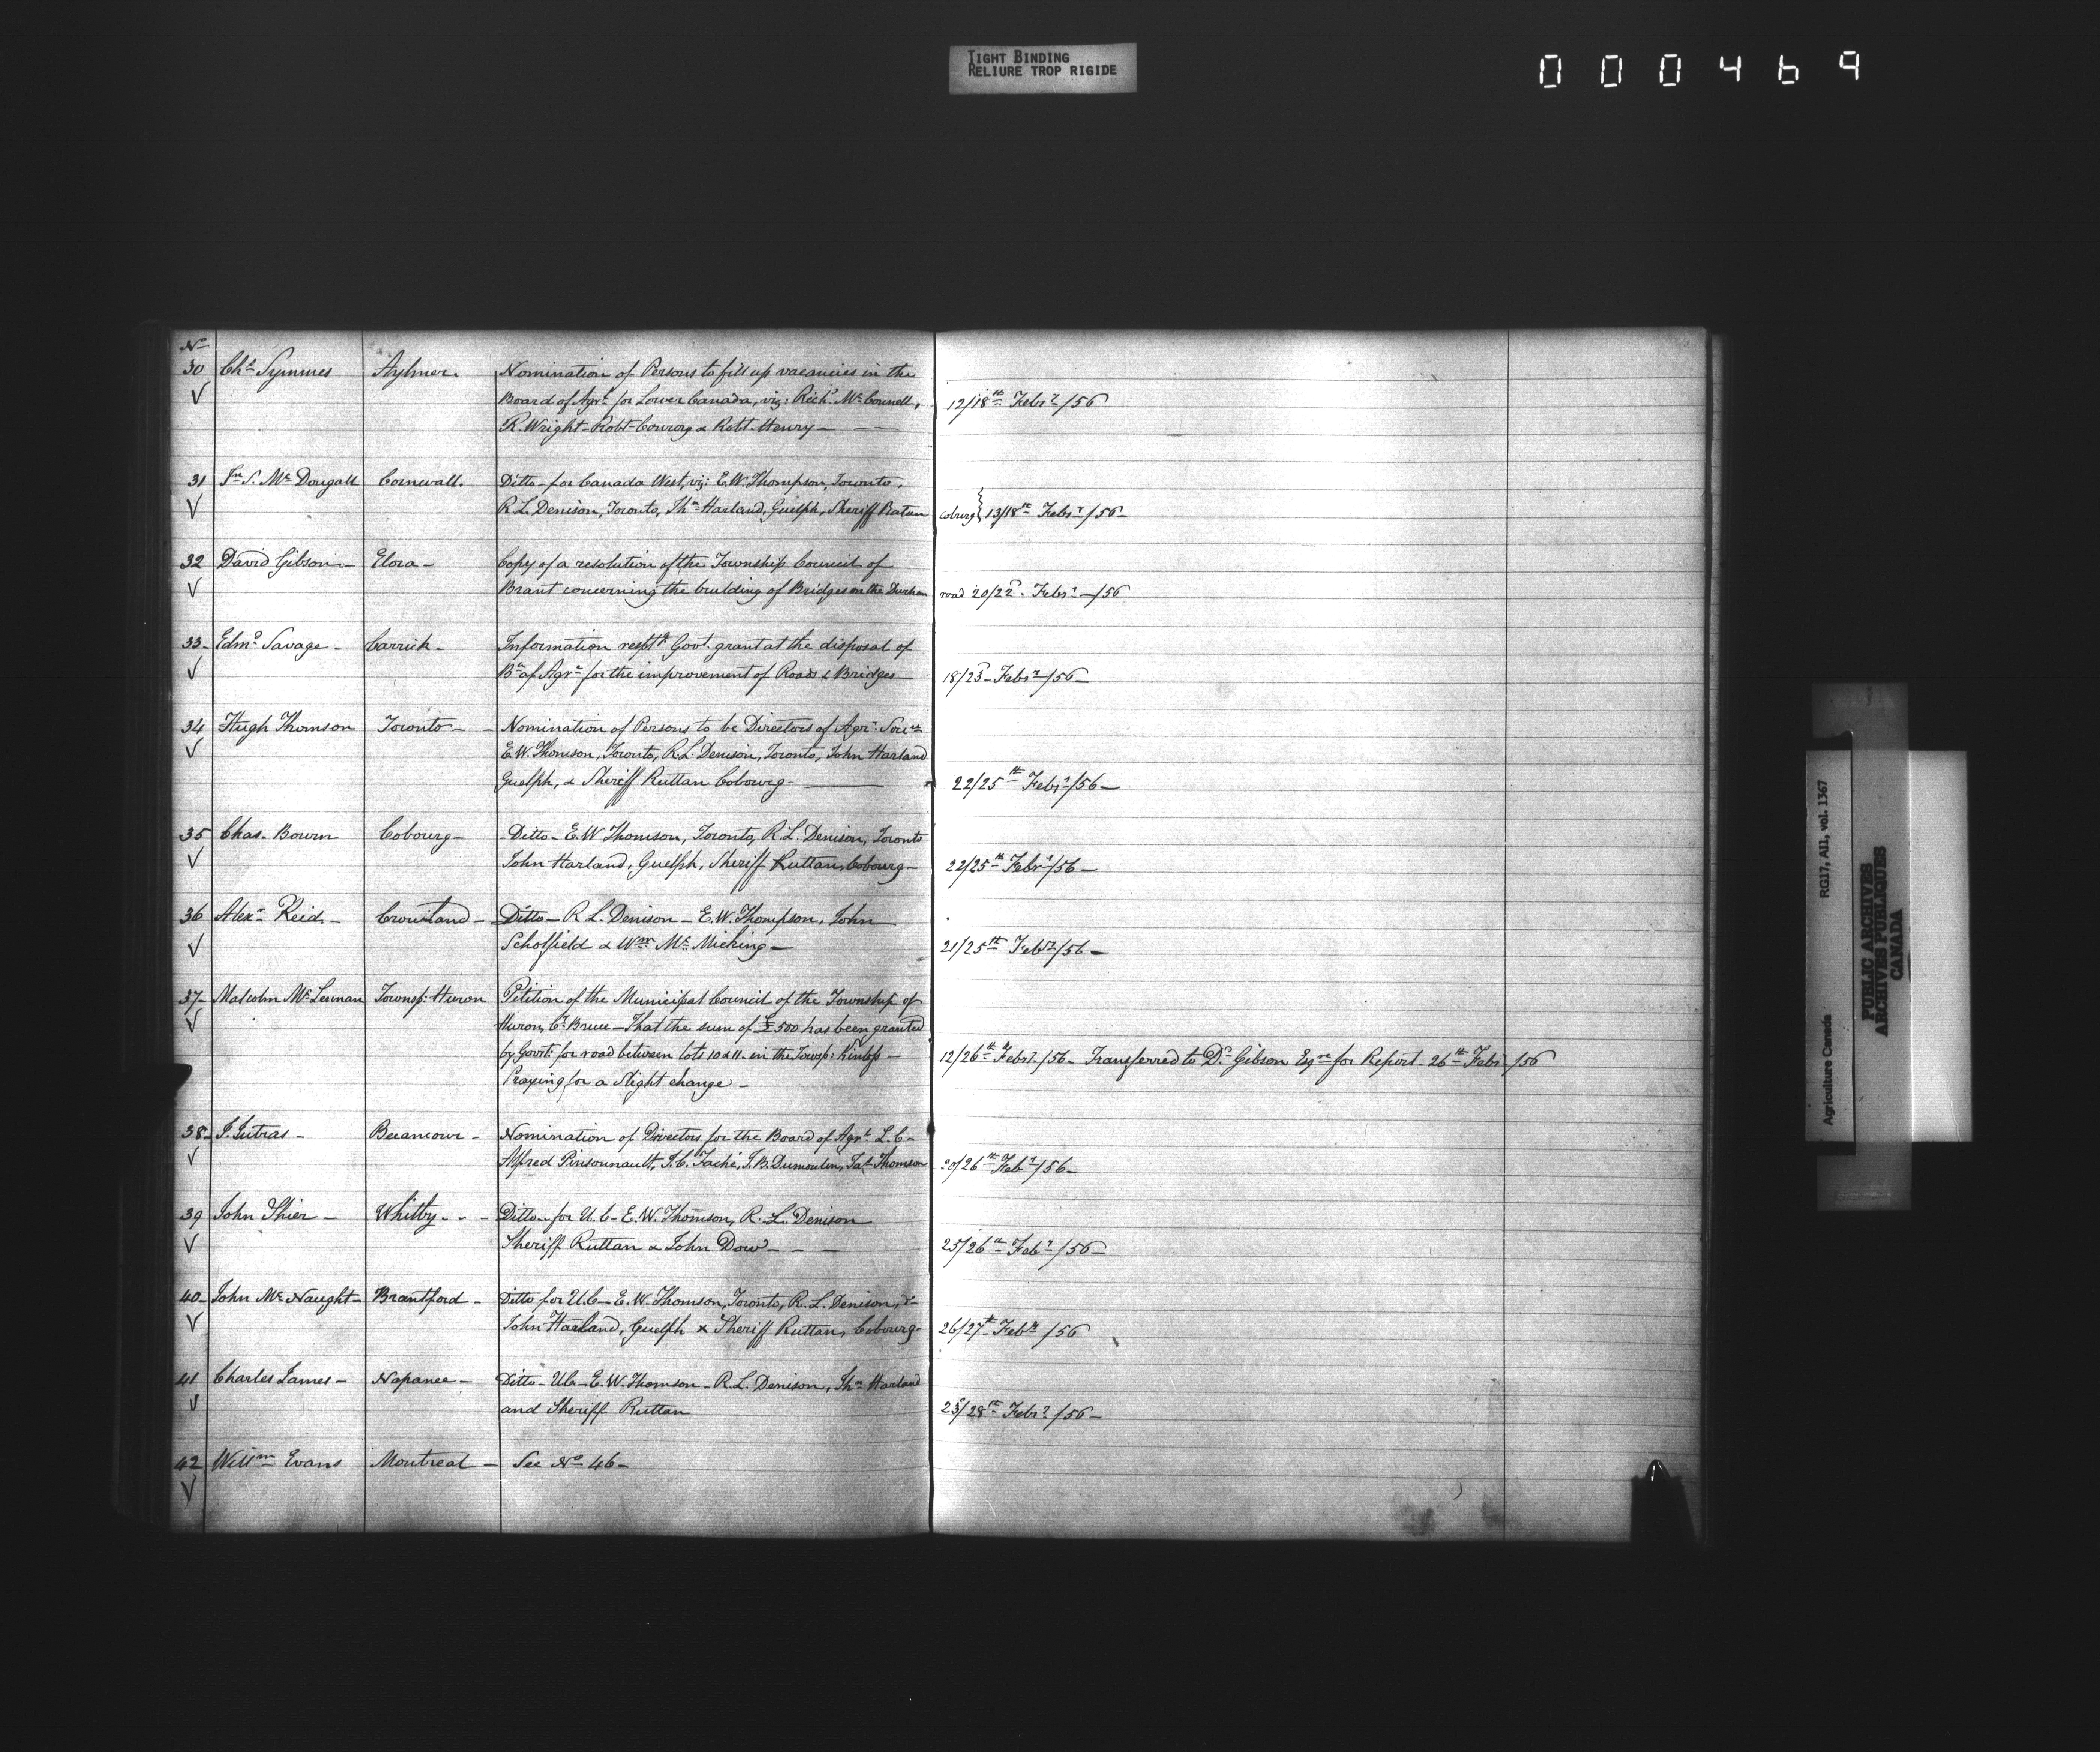 TIGHT BINDING
RELIURE TROP RIGIDE
000469
No
30 Chs Symmes Aylmer. Nomination of Persons to fill up vacancies in the
Board of Agre for Lower Canada, viz: Richd McConnell,
R. Wright - Robt Conroy & Robt Henry - 12/18th Febry /56
31 Jn S. McDougall Cornwall. Ditto - for Canada West, viz: E.W. Thompson, Toronto.
R L. Denison, Toronto, Jhn Harland, Guelph, Sheriff Ratan coburg } 13/18th Febry /56 -
32 David Gibson - Elora - Copy of a resolution of the Township Council of
Brant concerning the building of Bridges on the Durham road 20/22d. Febry - /56
33 - Edmd Savage - Carrick - Information respt'g Govt. grant at the disposal of
Bu of Agre for the improvement of Roads & Bridges - 18/25 - Febry /56 -
34 Hugh Thomson Toronto - - Nomination of Persons to be Directors of Agr:
E.W. Thomson, Toronto, R L. Denison, Toronto, John Harland
Guelph, & Sheriff Ruttan Cobourg - 22/25th Febry /56 -
35 Chas. Bowen Cobourg - - Ditto - E.W Thomson, Toronto, R L. Denison, Toronto
John Harland, Guelph, Sheriff Ruttan, Cobourg - 22/25th Febry /56 -
36 Alexr Reid - Crowland - Ditto - R L. Denison - E.W. Thompson, John
Scholfield & Wm McMicking - 21/25th Febry /56 -
37 - Malcolm McLennan Townsp: Huron Petition of the Municipal Council of the Township of
Huron, Cy Bruce - That the sum of £500 has been granted
by Govt: for road between lots 10 & 11 - in the Townsp: Kinloss -
Praying for a slight change - 12/26th Febry /56 - Transferred to Dd Gibson Esqre for Report - 26th Febry /56
38 - J. Jutras - Becancour - Nomination of Directors for the Board of Agre L.C -
Alfred Pinsonnault, J.C. Taché, J.B. Dumoulin, Jas Thomson 20/26th Feby /56 -
39 John Shier - Whitby - - - Ditto - for U.C - E.W. Thomson, R. L. Denison
Sheriff Ruttan & John Dow - - - 25/26th Feby /56 -
40 - John McNaught - Brantford - Ditto for U.C - E.W. Thomson, Toronto, R.L. Denison, do -
John Harland, Guelph & Sheriff Ruttan, Cobourg - 26/27th Feby /56
41 Charles James - Napanee - Ditto - UC - E.W. Thomson - R.L. Denison, Jhn Harland
and Sheriff Ruttan 25/28th Febry /56 -
42 Willm Evans Montreal - See No 46 -
Agriculture Canada RG17, AII, vol. 1367
PUBLIC ARCHIVES
ARCHIVES PUBLIQUES
CANADA